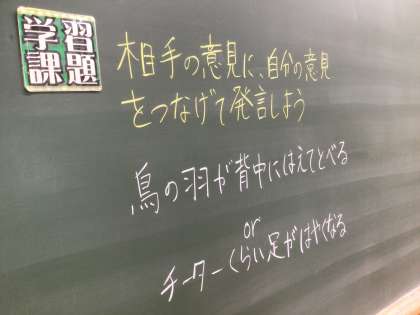 学習
課題
相手の意見に、自分の意見
をつなげて発言しよう
鳥の羽が背中にはえてとべる
or
チーターくらい足がはやくなる